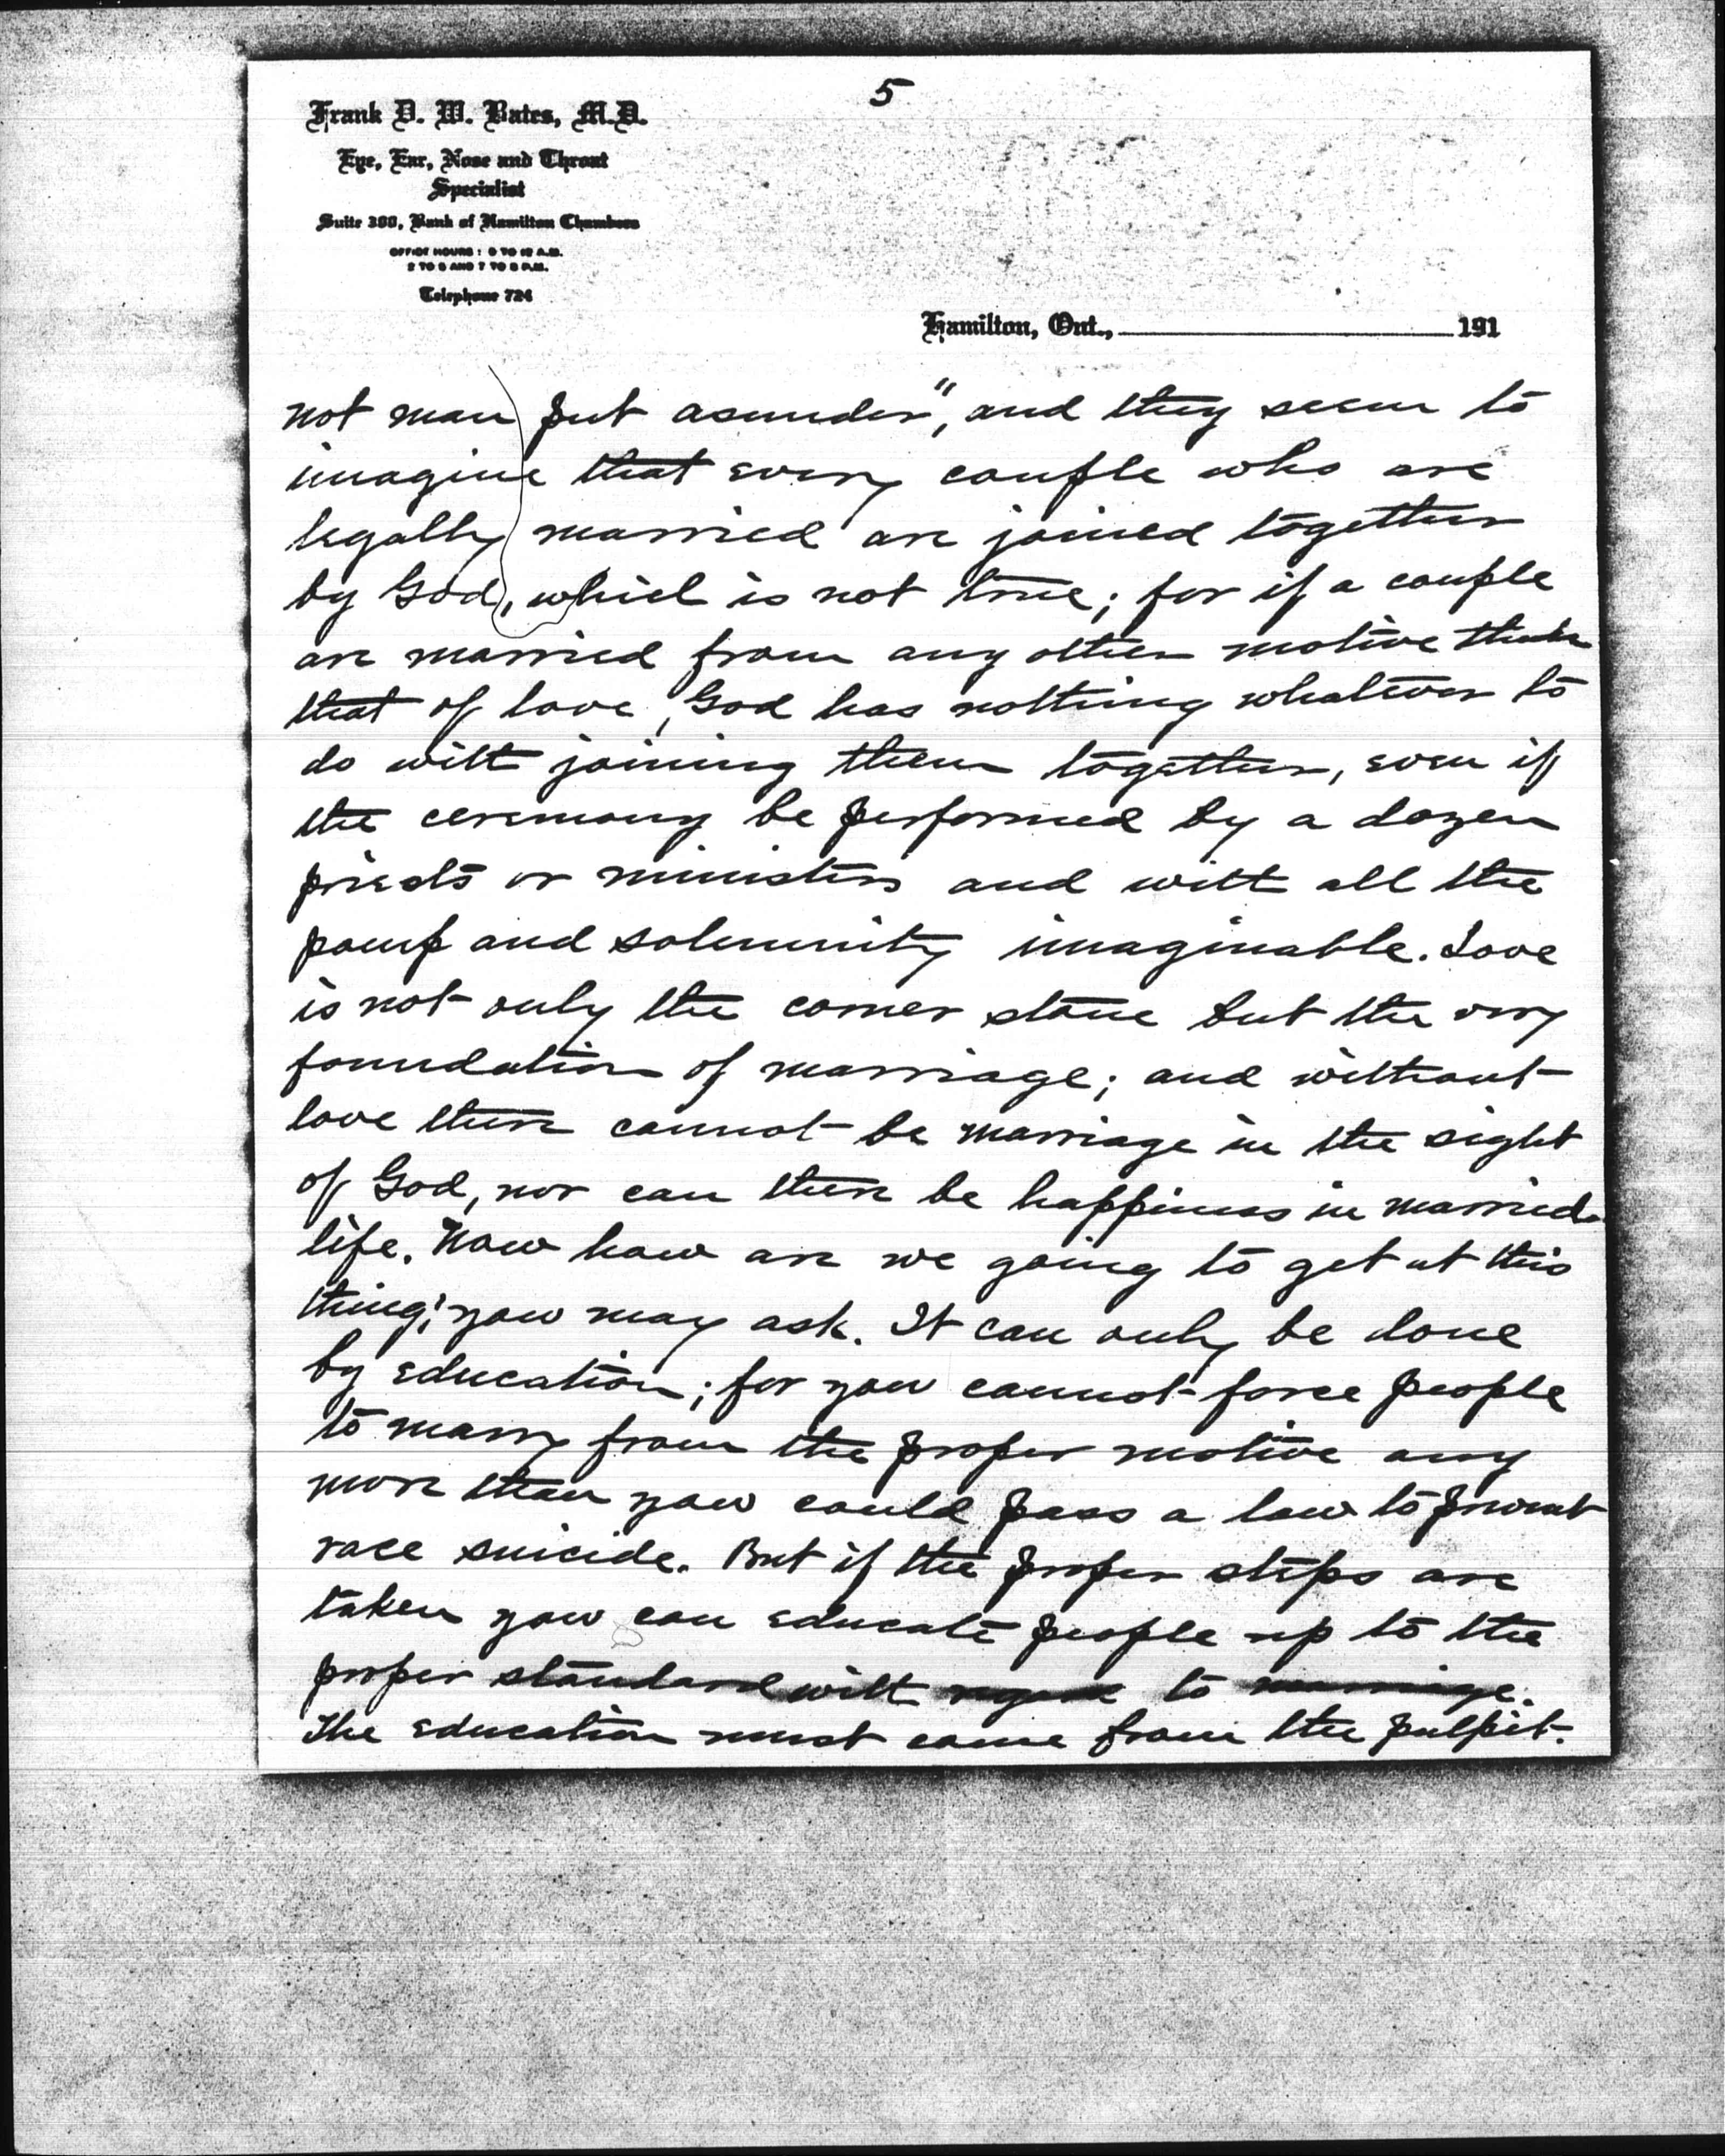 5
Frank D. W. Bates, M.D.
Eye, Ear, Nose and Throat
Specialist
Suite 300, Bank of Hamilton Chambers
OFFICE HOURS: 9 TO 12 A.M.
2 TO 5 AND 7 TO 8 P.M.
Telephone 724
Hamilton, Ont., 191
not man put asunder", and they seem to
imagine that every couple who are
legally married are joined together
by God, which is not true; for if a couple
are married from any other motive than
that of love, God has nothing whatever to
do with joining them together, even if
the ceremony be performed by a dozen
priests or ministers and with all the
pomp and solemnity imaginable. Love
is not only the corner stone but the very
foundation of marriage; and without
love there cannot be marriage in the sight
of God, nor can there be happiness in married
life. Now how are we going to get at this
thing; you may ask. It can only be done
by education; for you cannot force people
to marry from the proper motive any
more than you could pass a law to prevent
race suicide. But if the proper steps are
taken you can educate people up to the
proper standard with regard to marriage.
The education must come from the pulpit.